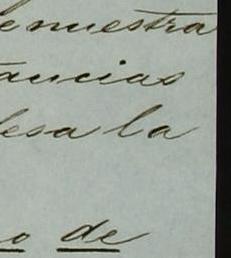 emuestra
tancias
lesa la
o de